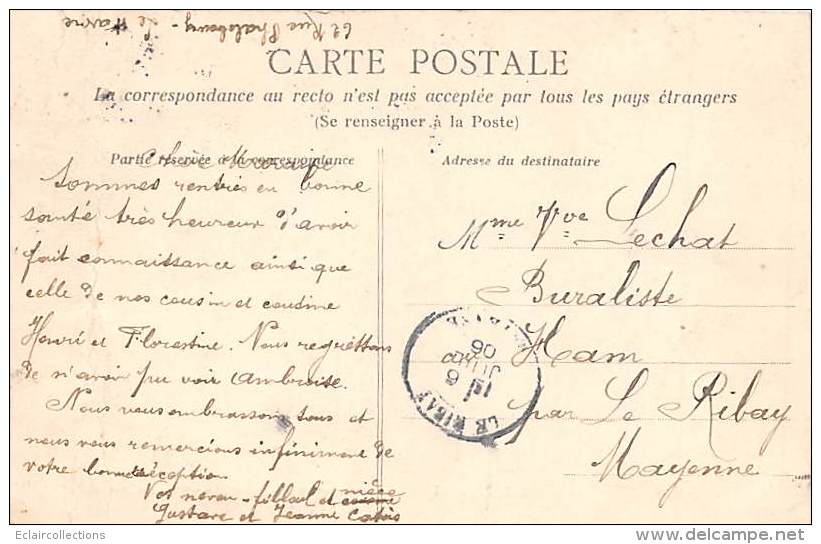 62 Rue Phalsbourg - Le Havre
CARTE POSTALE
La correspondance au recto n'est pas acceptée par tous les pays étrangers
(Se renseigner à la Poste)
Partie réservée à la correspondance
Adresse du destinataire
Chère Marraine
Sommes rentrés en bonne
santé très heureux d'avoir
fait connaissance ainsi que
celle de nos cousin et cousine
Henri et Florestine. Nous regrettons
de n'avoir pu voir Ambroise.
Nous vous embrassons tous et
nous vous remercions infiniment de
votre bonne réception
Vos neveu - filleul et nièce
Gustave et Jeanne
Mme Vve Lechat
Buraliste
Ham
par Le Ribay
Mayenne
LE RIBAY
6
JUIL
06
MAYENNE
Eclaircollections
www.delcampe.net